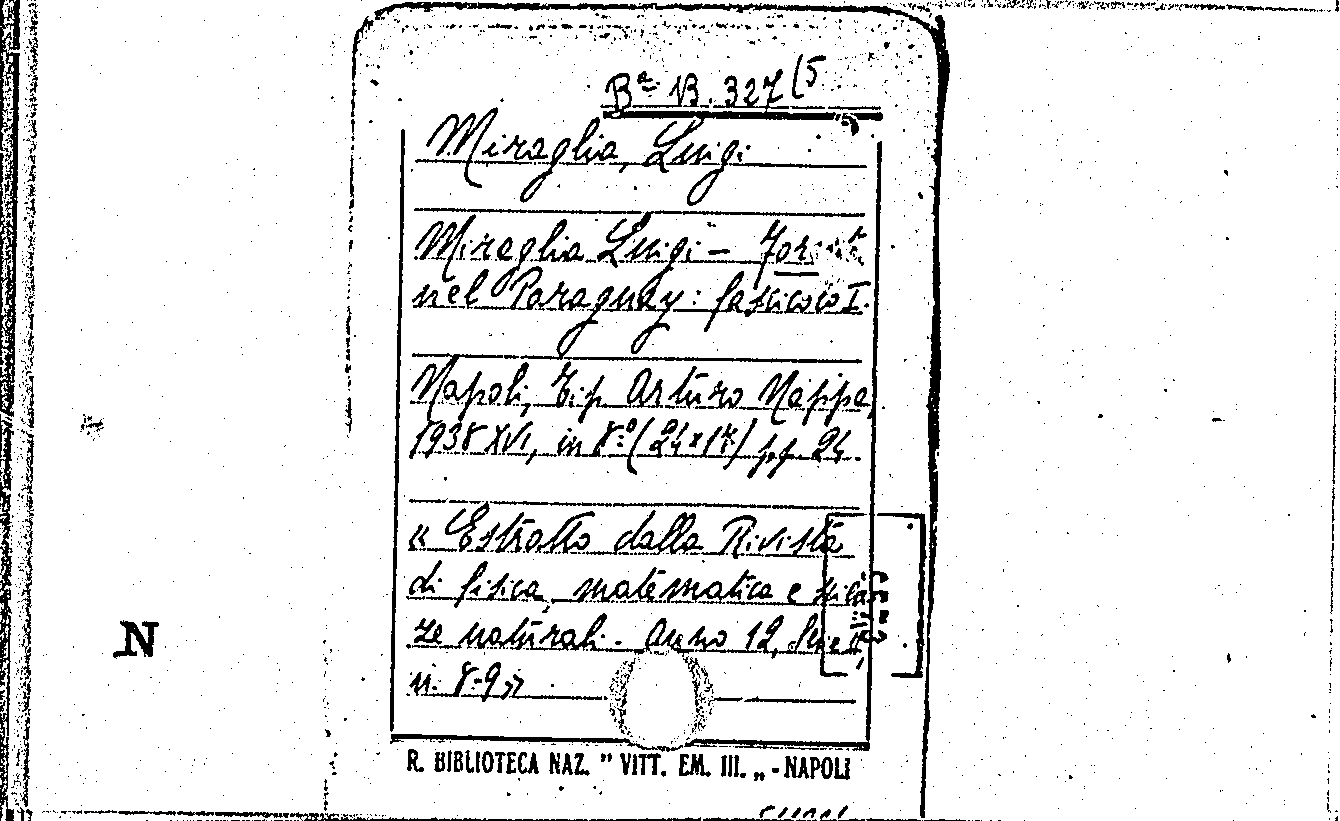 Ba B. 327 (5
Miraglia, Luigi
Miraglia Luigi –
nel Paraguay: fascicolo I.
Napoli, Tip. Arturo Nappa,
1938 XVI, in 8.° (24x17) pp. 24.
« Estratto dalla Rivista
di fisica, matematica e scien
ze naturali. Anno 12, Serie II,
n. 8-9»
N
R. BIBLIOTECA NAZ. " VITT. EM. III. „ - NAPOLI